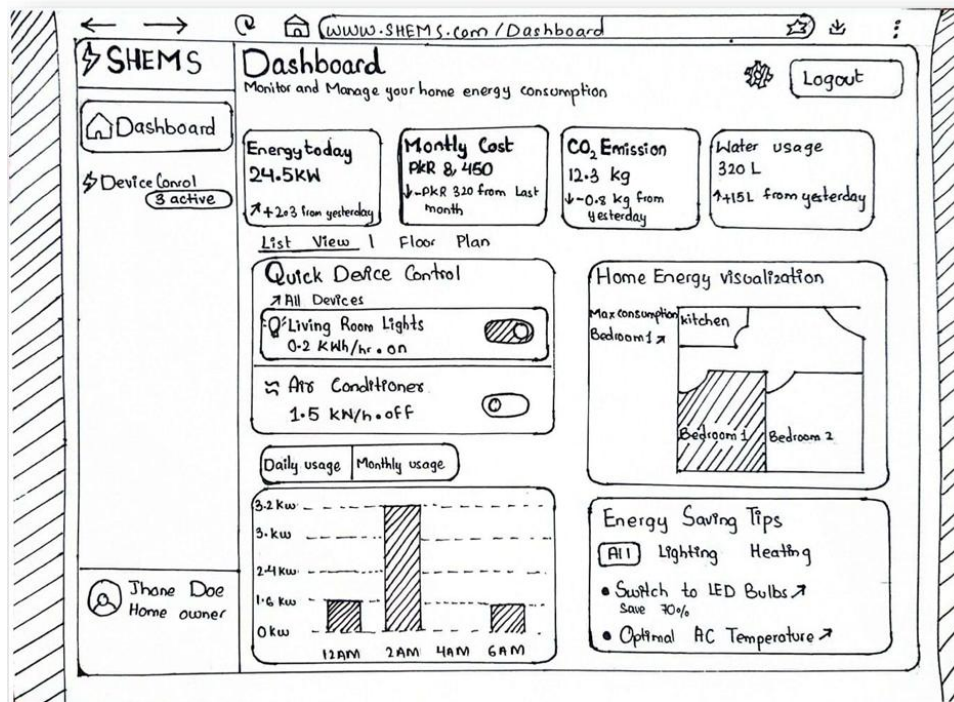 www.SHEMS.com/Dashboard
SHEMS
Dashboard
Device Conrol
3 active
Jhone Doe
Home owner
Dashboard
Monitor and Manage your home energy consumption
Logout
Energy today
24.5KW
↗+2.3 from yesterday
Montly Cost
PKR 8,450
↓-PKR 320 from Last
month
CO₂ Emission
12.3 kg
↓-0.8 kg from
yesterday
Water usage
320 L
↑+15L from yesterday
List View | Floor Plan
Quick Device Control
↗All Devices
Living Room Lights
0.2 KWh/hr.on
Air Conditioner
1.5 KN/h.off
Daily usage
Monthly usage
3.2 Kw
3.kw
2.4kw
1.6 kw
0kw
12AM 2AM 4AM 6AM
Home Energy visualization
Max consumption
Bedroom 1 ↗
kitchen
Bedroom 1
Bedroom 2
Energy Saving Tips
All Lighting Heating
• Switch to LED Bulbs ↗
Save 70%
• Optimal AC Temperature ↗